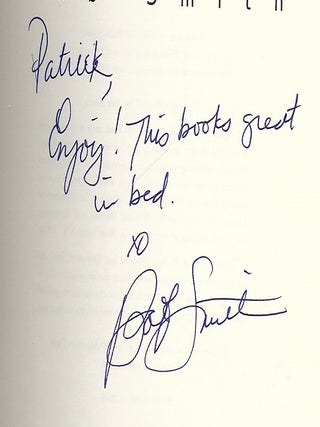 s m i t h
Patrick,
Enjoy! This books great
in bed.
xo
Smith